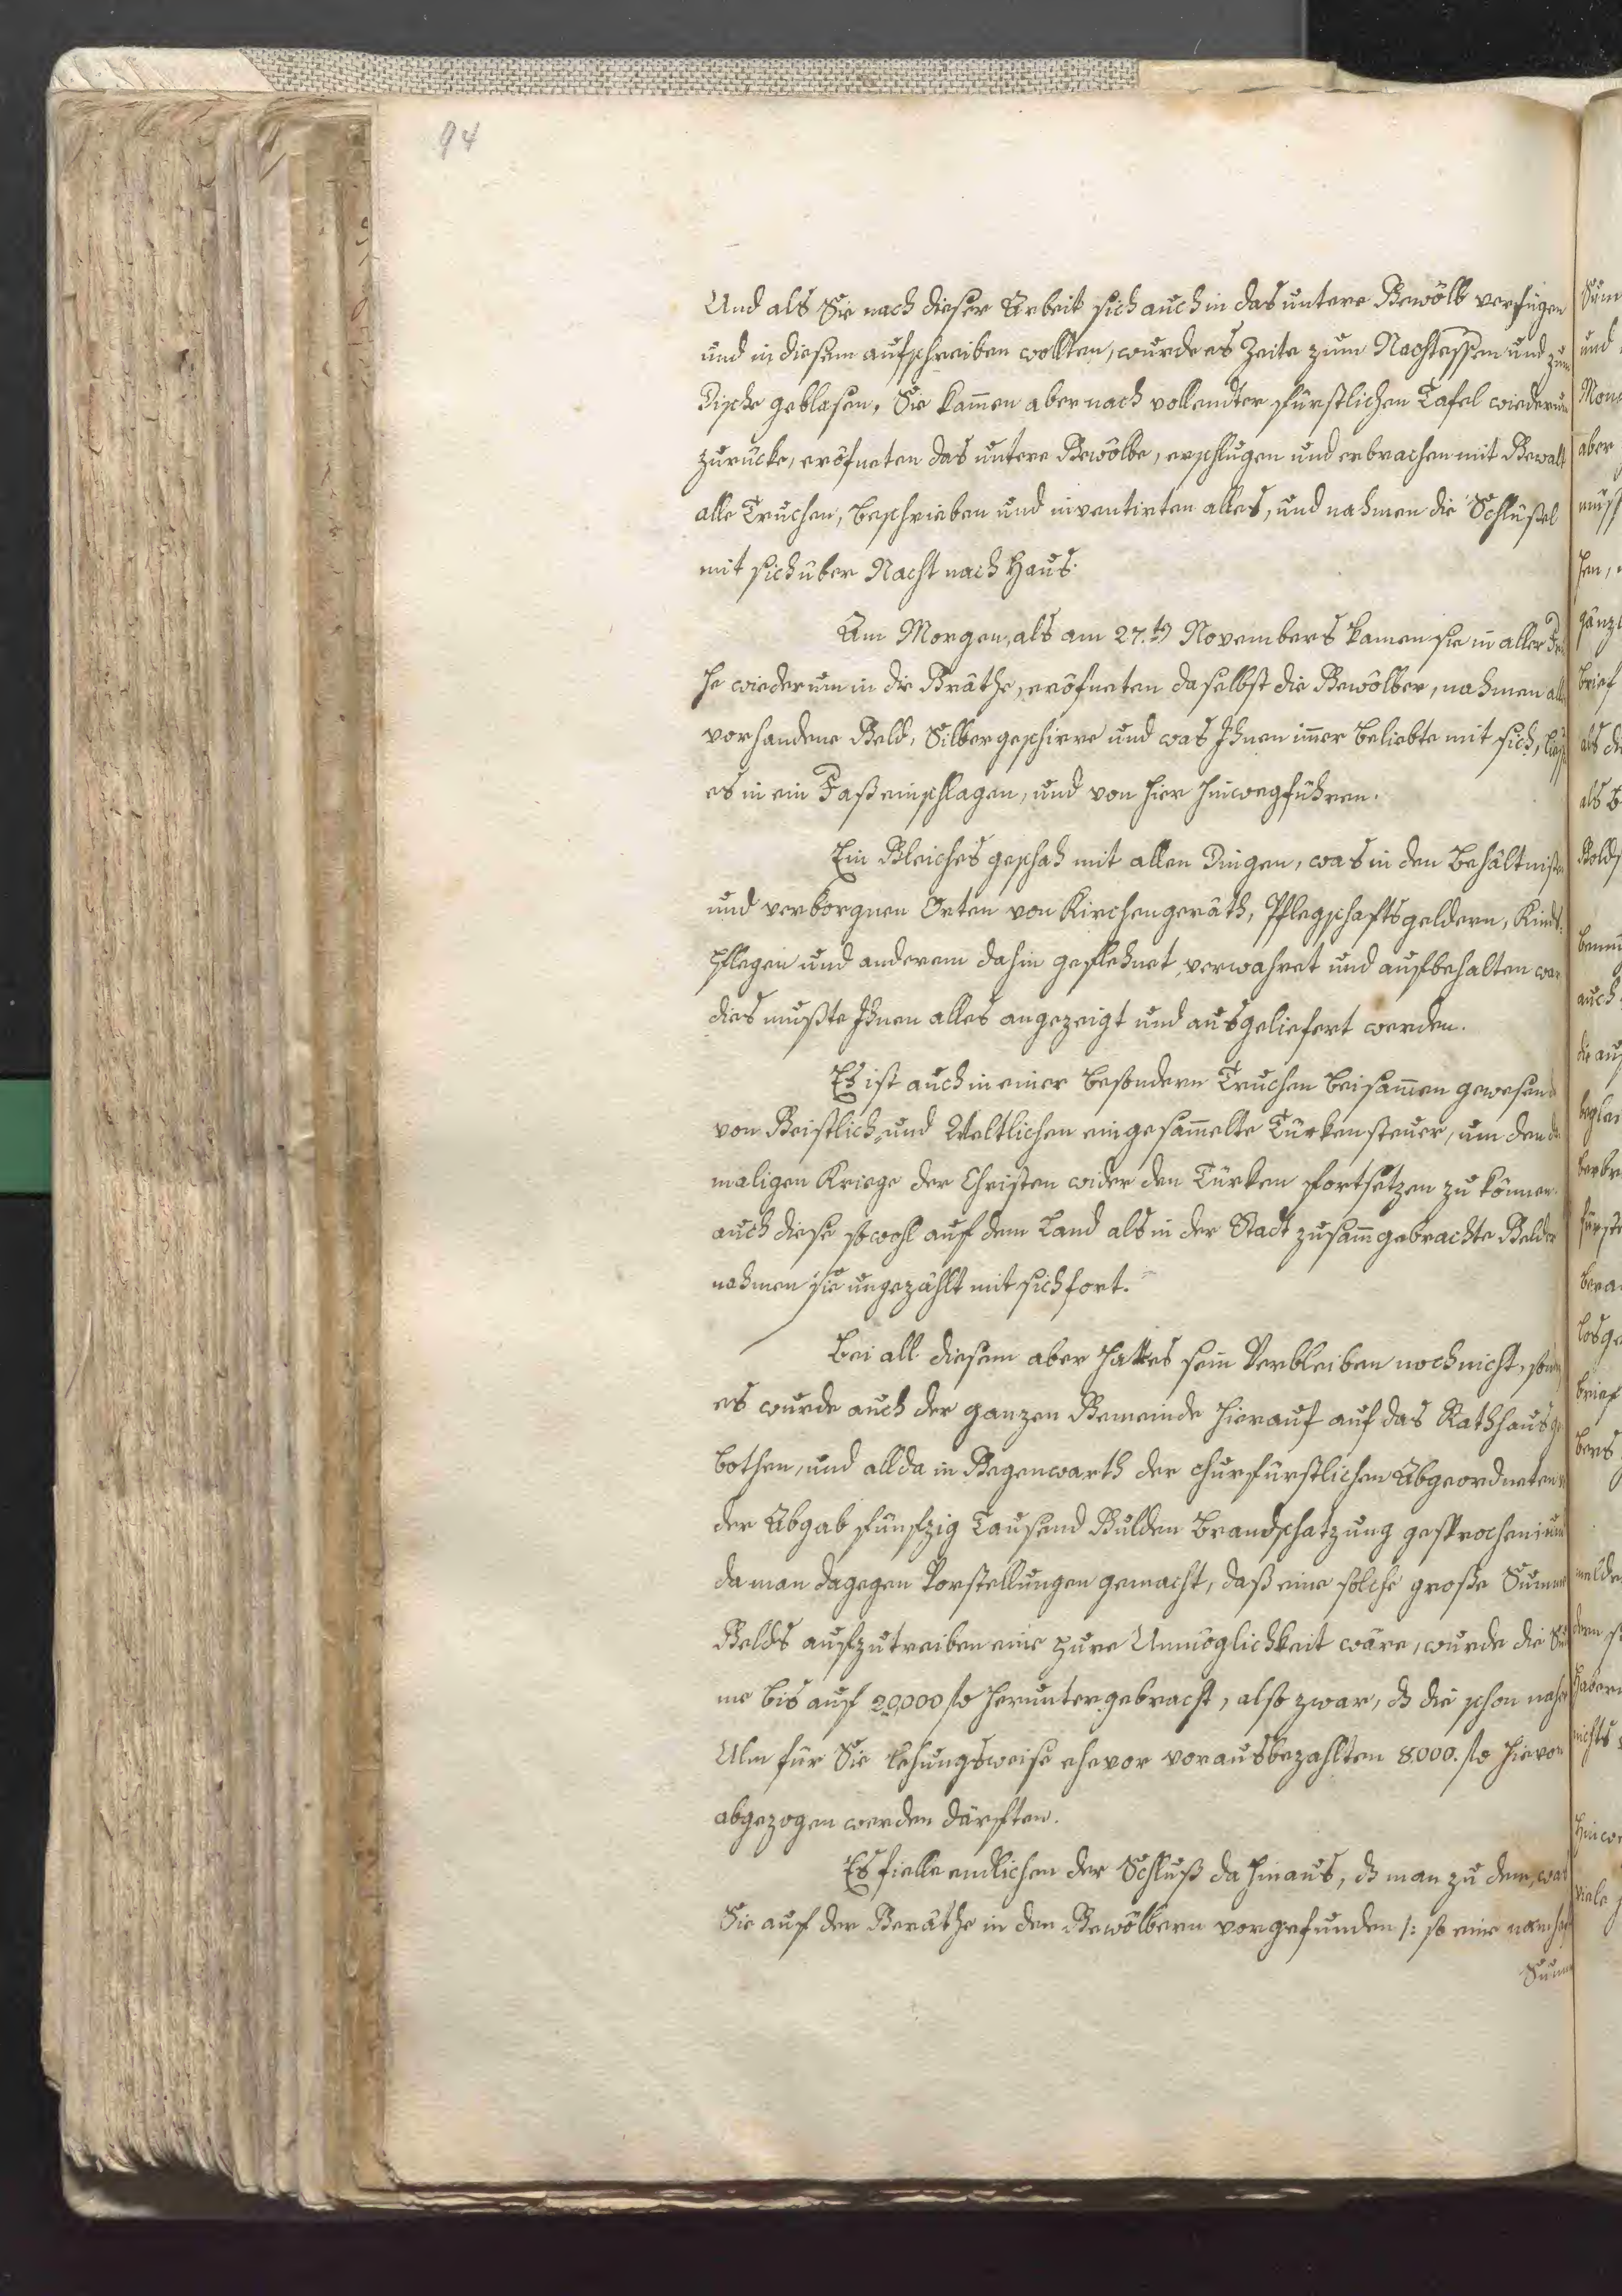 94
Und als Sie nach dieser Arbeit sich auch in das untere Gewölb verfügen
und in diesem aufschreiben wollten, wurde es Zeite zum Nachtessen und zum
Tische geblasen, Sie kam̄en aber nach vollendter fürstlichen Tafel wiederum
zurücke, eröfneten das untere Gewölbe, erschlugen und erbrachen mit Gewalt
alle Truchen, beschrieben und inventirten alles, und nahmen die Schlüßel
mit sich über Nacht nach Haus.
Am Morgen, als am 27.t Novembers kamen sie in aller Frü
he wiederum in die Gräthe, eröfneten daselbst die Gewölber, nahmen alle
vorhandene Geld, Silbergeschirre und was Ihnen im̄er beliebte mit sich, ließ
es in ein Faß einschlagen, und von hier hinwegführen.
Ein Gleiches geschah mit allen Dingen, was in den Behältnißen
und verborgnen Orten von Kirchengeräth, Pflegschaftsgeldern, Kinds:
pflegen und anderem dahin geflehnet, verwahret und aufbehalten war
dies mußte Ihnen alles angezeigt und ausgeliefert werden.
Es ist auch in einer besondern Truchen beisam̄en gewesen
von Geistlich= und Weltlichen eingesam̄elte Türkensteuer, um den da
maligen Kriege der Christen wider den Türken fortsetzen zu können
auch diese sowohl auf dem Land als in der Stadt zusam̄gebrachte Gelder
nahmen sie ungezählt mit sich fort.
Bei all diesem aber hatte es sein Verbleiben noch nicht, sondern
es wurde auch der ganzen Gemeinde hierauf auf das Rathhaus ge
bothen, und allda in Gegenwarth der churfürstlichen Abgeordneten
der Abgab fünfzig Tausend Gulden Brandschatzung gesprochen; und
da man dagegen Vorstellungen gemacht, daß eine solche große Summe
Gelds aufzutreiben eine pure Unmöglichkeit wäre, wurde die Sum
me bis auf 20,000 fl heruntergebracht, also zwar, dß die schon nacher
Ulm für Sie lehungsweise ehevor vorausbezahlten 8000. fl hievon
abgezogen werden därften.
Es fielle endlichen der Schluß da hinaus, dß man zu dem, was
Sie auf der Geräthe in den Gewölbern vorgefunden /: so eine namhaf
Summ